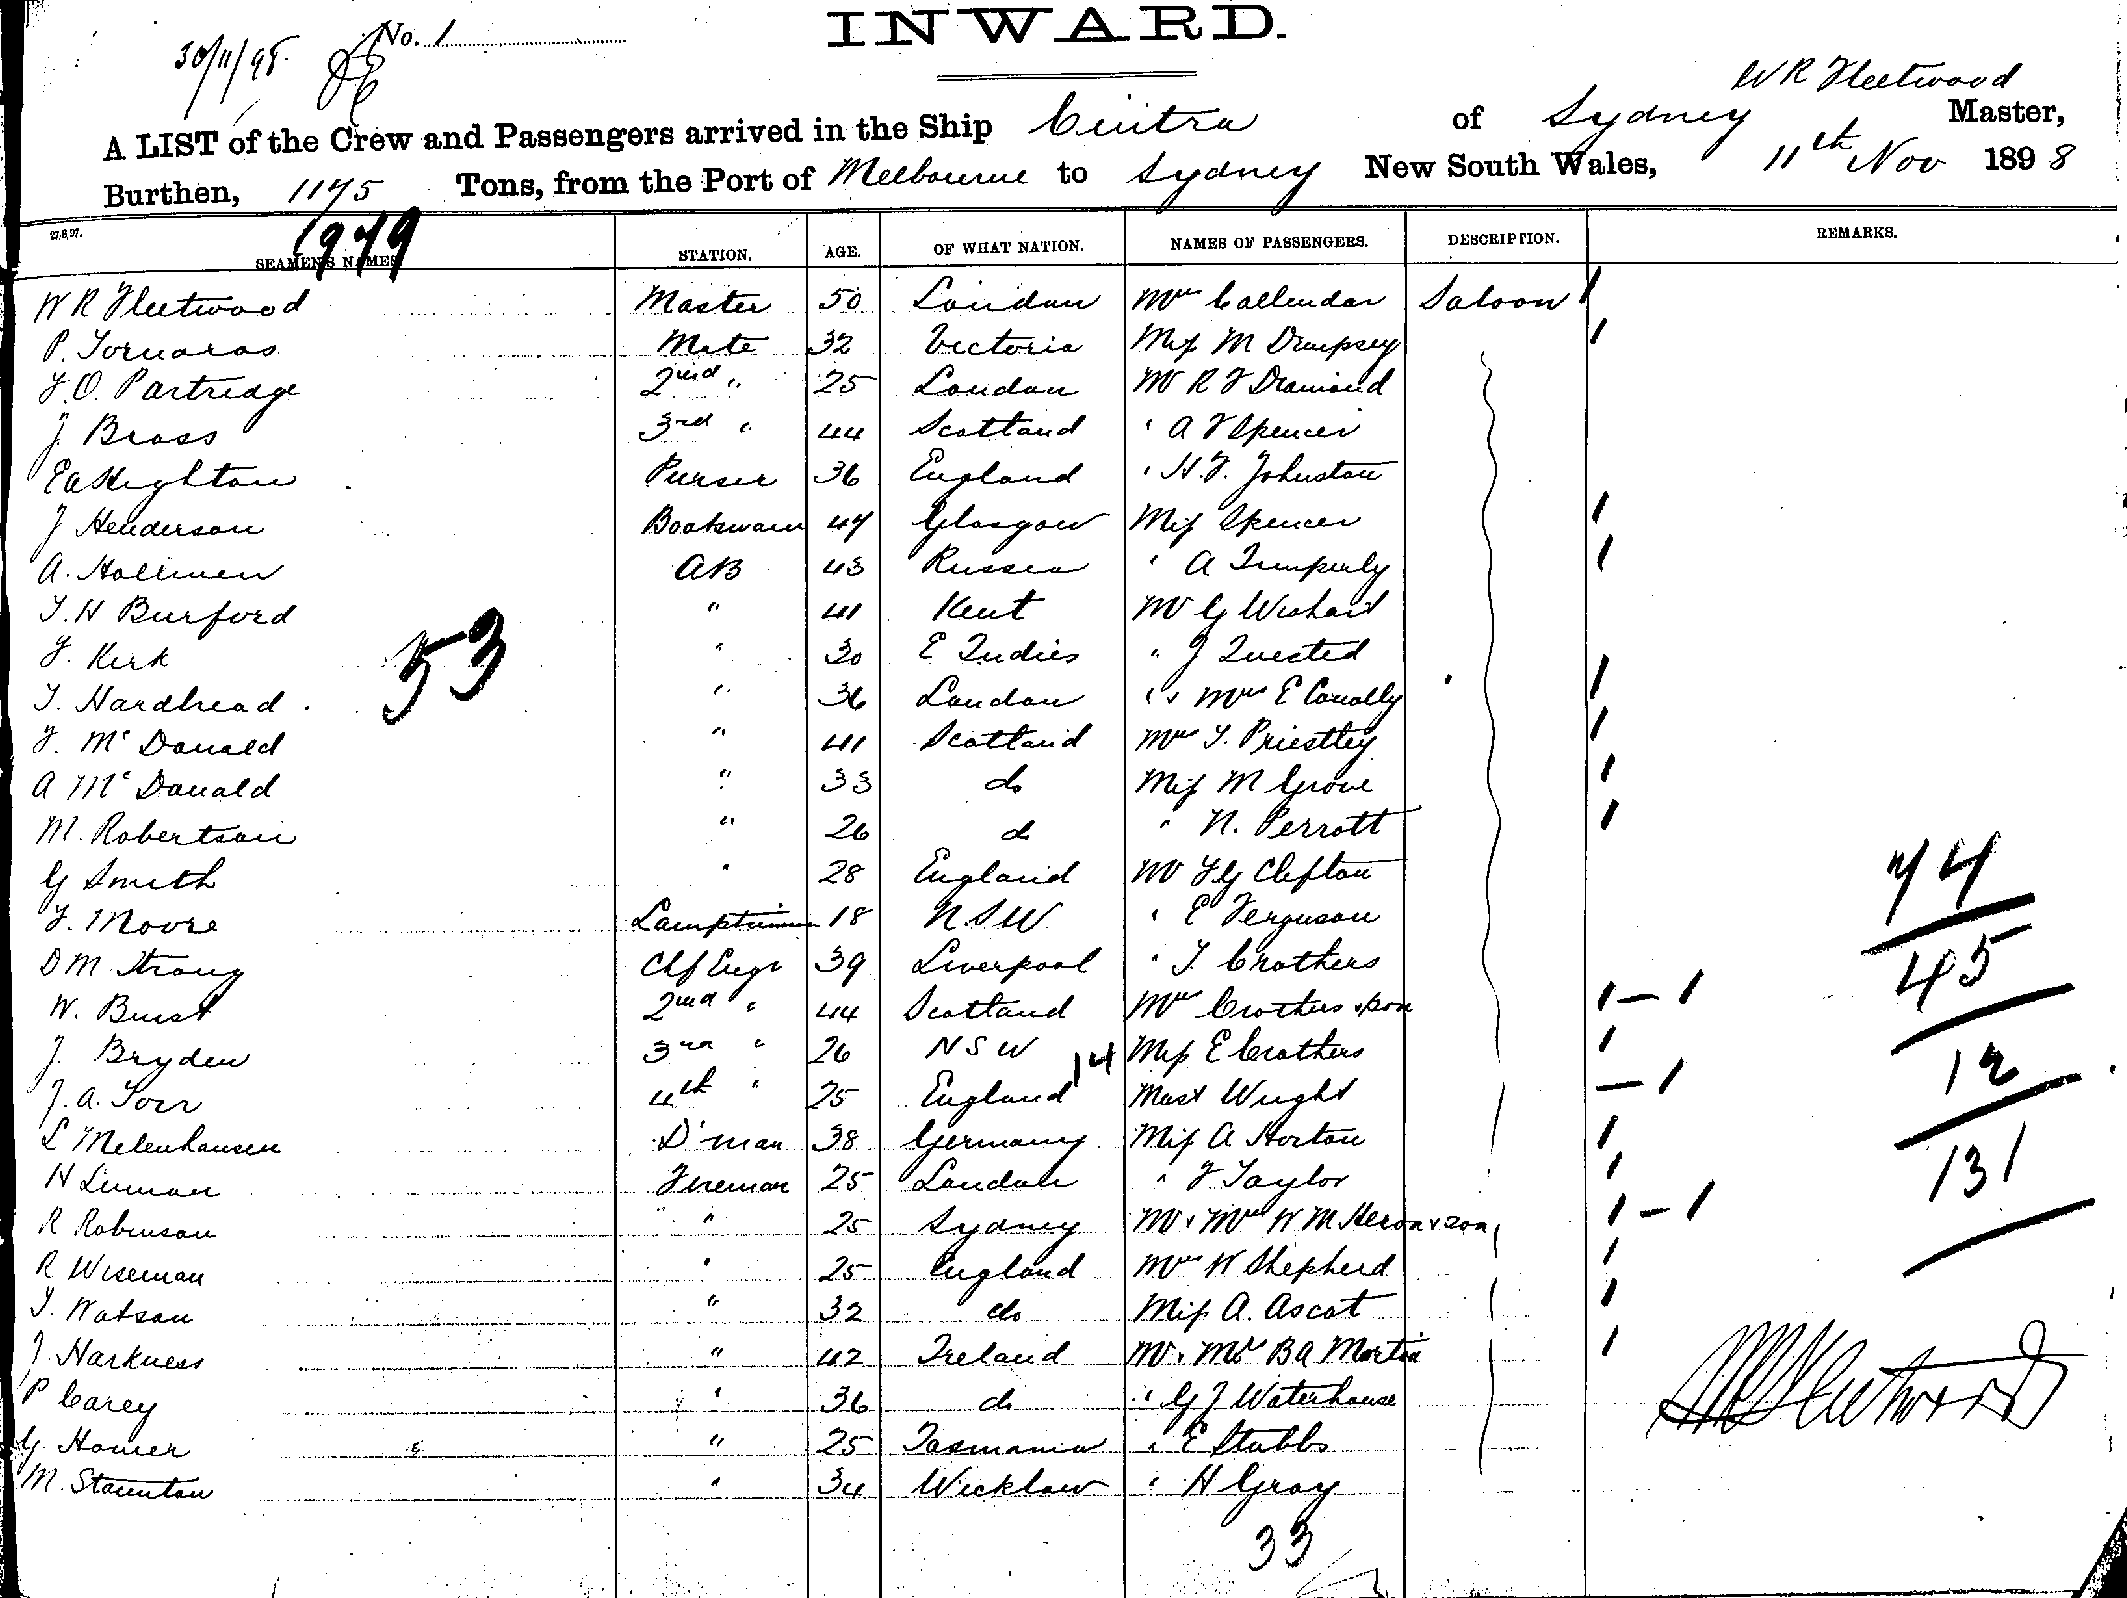 No. 1
INWARD.
30/11/98.
W R Fleetwood
A LIST of the Crew and Passengers arrived in the Ship Cintra of Sydney Master,
Burthen, 1175 Tons, from the Port of Melbourne to Sydney New South Wales, 11th Nov 1898
27.8.97. 1979
SEAMEN'S NAMES STATION. AGE. OF WHAT NATION. NAMES OF PASSENGERS. DESCRIPTION. REMARKS.
W R Fleetwood Master 50 London Mrs Callendar Saloon 1
P. Tornaros Mate 32 Victoria Miss M Dempsey 1
F. O. Partridge 2nd " 25 London Mr R F Diamond
J. Brass 3rd " 44 Scotland " A F Spencer
E A Highton Purser 36 England " H. F. Johnston
J Henderson Boatswain 47 Glasgow Miss Spencer 1
A. Hollmen AB 43 Russia " A Timperly 1
T. H Burford " 41 Kent Mr G Wishart
F. Kirk " 30 E Indies " J Quested
53
T. Hardhead " 36 London " & Mrs E Conally 1
F. McDonald " 41 Scotland Mrs T. Priestley 1
A McDonald " 33 do Miss M Grove 1
M. Robertson " 26 do " N. Perrott 1
G Smith " 28 England Mr F G Clifton
74
F. Moore Lamptrimmer 18 N S W " E Ferguson
D M Strong Chf Engr 39 Liverpool " T. Crothers
45
W. Buist 2nd " 44 Scotland Mrs Crothers & son 1 - 1
J. Bryden 3rd " 26 N S W 14 Miss E Crothers 1
12
J. A. Torr 4th " 25 England Mast Wright - 1
L Melenhausen D'man 38 Germany Miss A Horton 1
131
H Linman Fireman 25 London " F Taylor 1
R Robinson " 25 Sydney Mr & Mrs W M Heron & son 1 - 1
R Wiseman " 25 England Mrs W Shepherd 1
T. Watson " 32 do Miss A. Ascot 1
J Harkness " 42 Ireland Mr & Mrs B A Martin 1
P Carey " 36 do " G J Waterhouse
W R Fleetwood
G. Homer " 25 Tasmania " E Stubbs
M. Staunton " 34 Wicklow " H Gray
33